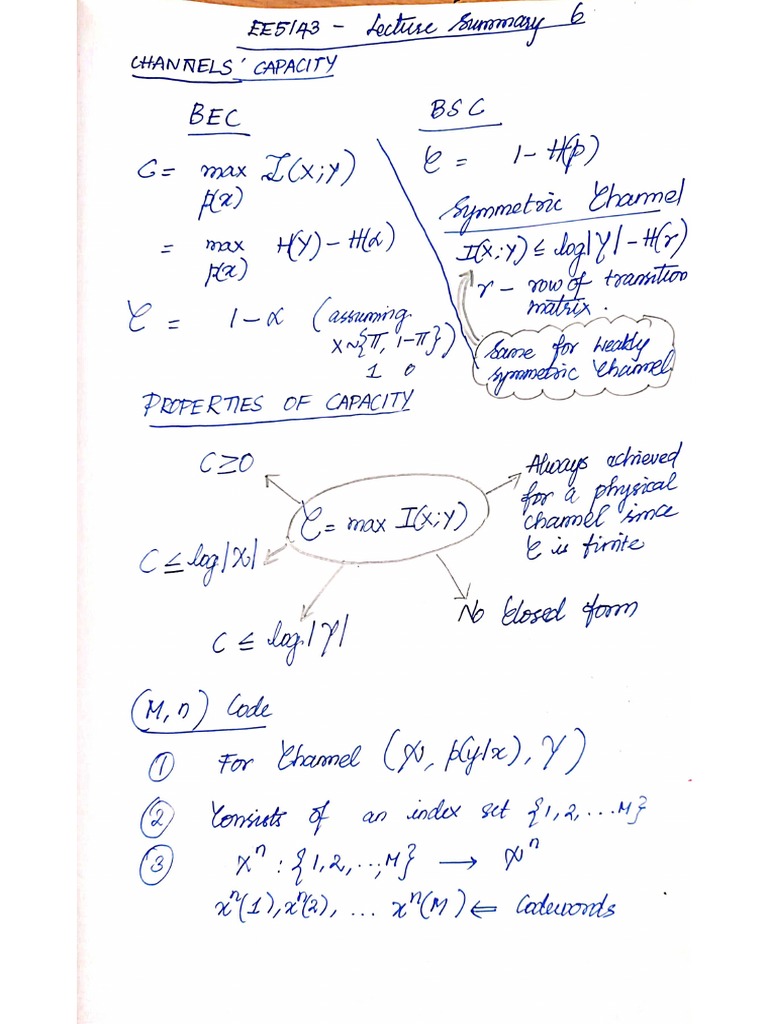 EE5143 - Lecture Summary 6
CHANNELS' CAPACITY
BEC
C = max I(X;Y)
p(x)
= max H(Y) - H(α)
p(x)
C = 1-α (assuming
X~{π, 1-π})
1 0
BSC
C = 1 - H(p)
Symmetric Channel
I(X;Y) ≤ log|Y| - H(r)
r - row of transition
matrix.
Same for weakly
symmetric channel
PROPERTIES OF CAPACITY
C≥0
C = max I(X;Y)
Always achieved
for a physical
channel since
C is finite
C ≤ log|X|
No closed form
C ≤ log|Y|
(M, n) Code
① For Channel (X, p(y|x), Y)
② Consists of an index set {1,2,...M}
③ X^n : {1,2,..,M} → X^n
x^n(1), x^n(2), ... x^n(M) ⇐ Codewords